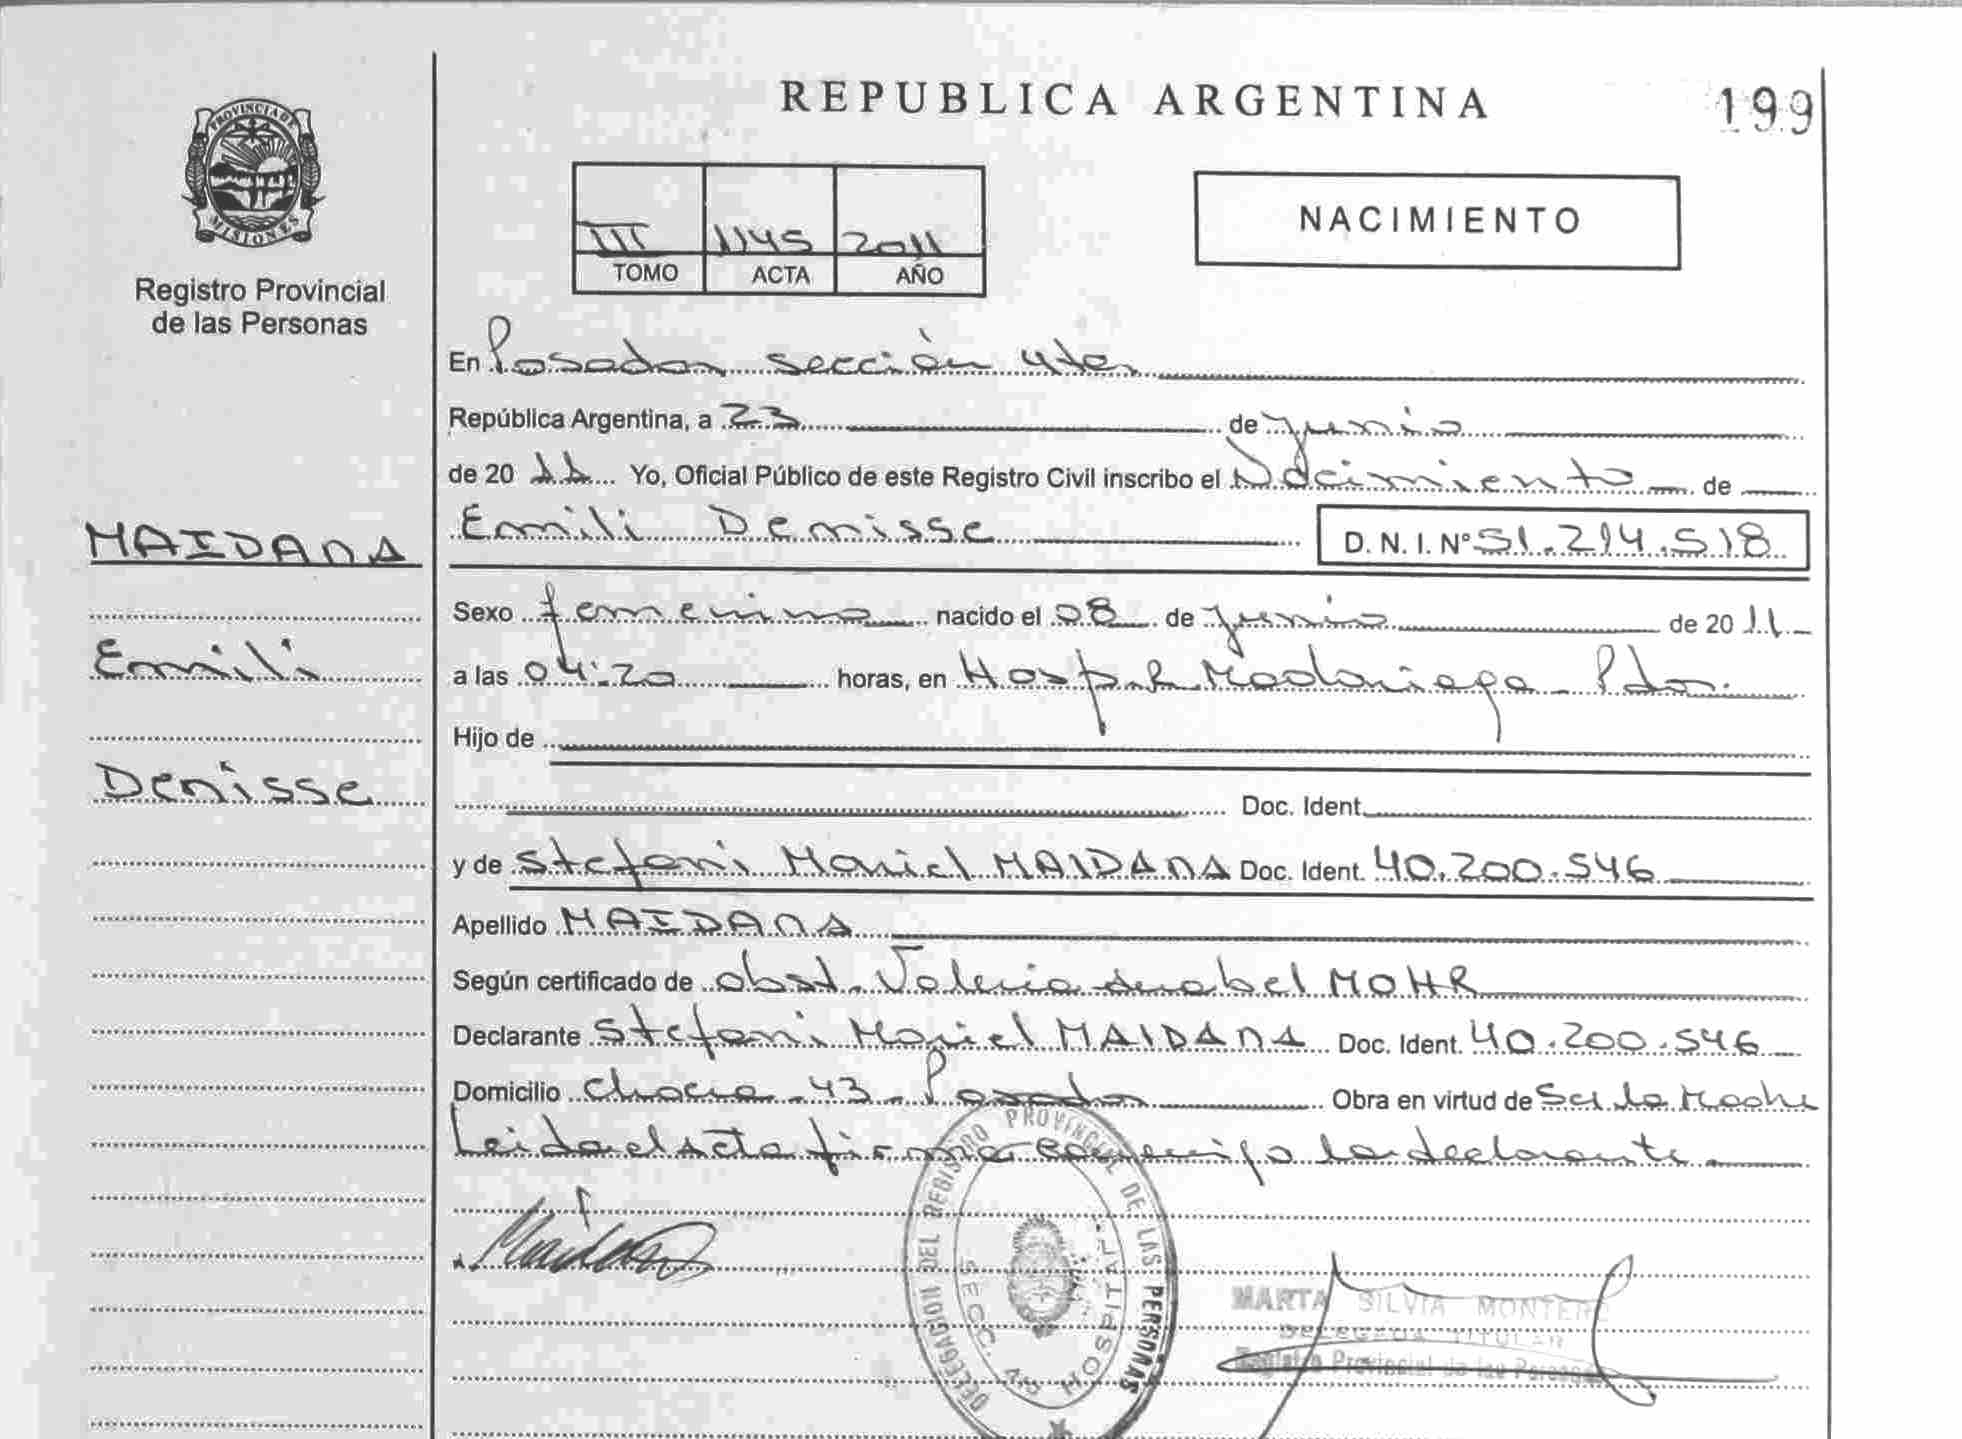 REPUBLICA ARGENTINA
199
PROVINCIA DE
MISIONES
Registro Provincial
de las Personas
III 1145 2011
TOMO ACTA AÑO
NACIMIENTO
En Posadas sección 4ta
República Argentina, a 23 de junio
de 20 11 Yo, Oficial Público de este Registro Civil inscribo el Nacimiento de
Emili Denisse D. N. I. Nº 51.214.518
MAIDANA
Emili
Denisse
Sexo femenino nacido el 08 de junio de 20 11
a las 04:20 horas, en Hosp. R. Madariaga - Pdas.
Hijo de
Doc. Ident.
y de Stefani Mariel MAIDANA Doc. Ident. 40.200.546
Apellido MAIDANA
Según certificado de obst. Valeria Anabel MOHR
Declarante Stefani Mariel MAIDANA Doc. Ident. 40.200.546
Domicilio Chacra - 43 - Posadas Obra en virtud de Ser la Madre
Leida el Acta firma conmigo la declarante
Maidana
DELEGACION DEL REGISTRO PROVINCIAL DE LAS PERSONAS
SECC. 4ta HOSPITAL
MARTA SILVIA MONTERO
DELEGADA TITULAR
Registro Provincial de las Personas